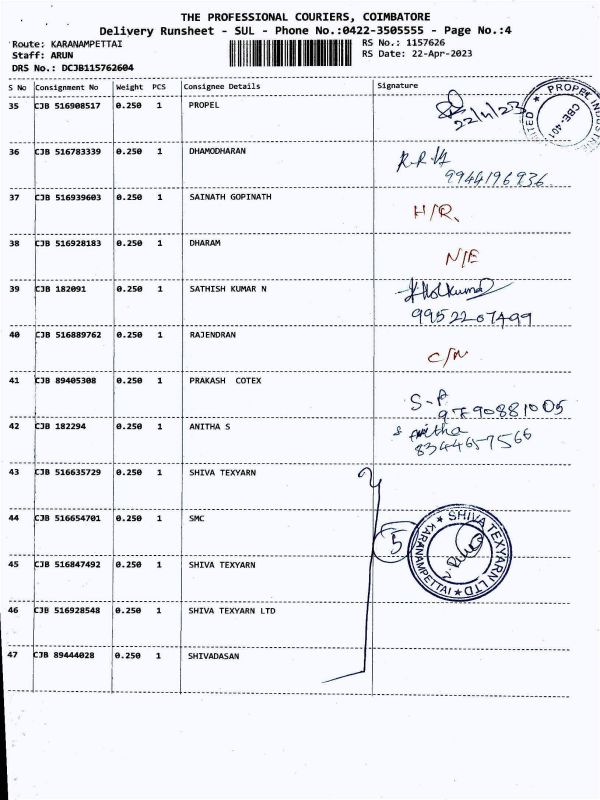 THE PROFESSIONAL COURIERS, COIMBATORE
Delivery Runsheet - SUL - Phone No.:0422-3505555 - Page No.:4
Route: KARANAMPETTAI RS No.: 1157626
Staff: ARUN RS Date: 22-Apr-2023
DRS No.: DCJB115762604
S No Consignment No Weight PCS Consignee Details Signature
35 CJB 516908517 0.250 1 PROPEL 22/4/23
PROPEL INDUSTRIE
CBE-401
ITED
36 CJB 516783339 0.250 1 DHAMODHARAN
9944196936
37 CJB 516939603 0.250 1 SAINATH GOPINATH H/R.
38 CJB 516928183 0.250 1 DHARAM N/E
39 CJB 182091 0.250 1 SATHISH KUMAR N
9952207499
40 CJB 516889762 0.250 1 RAJENDRAN C/N
41 CJB 89405308 0.250 1 PRAKASH COTEX S-P
9790881005
42 CJB 182294 0.250 1 ANITHA S S Anitha
8344657566
43 CJB 516635729 0.250 1 SHIVA TEXYARN
44 CJB 516654701 0.250 1 SMC 5
SHIVA TEXYARN LTD
KARANAMPETTAI
45 CJB 516847492 0.250 1 SHIVA TEXYARN
46 CJB 516928548 0.250 1 SHIVA TEXYARN LTD
47 CJB 89444028 0.250 1 SHIVADASAN